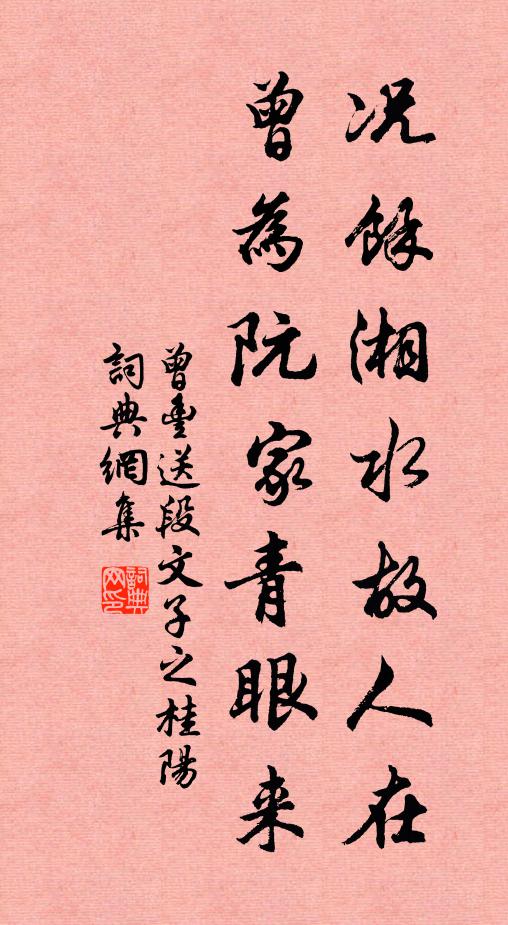 况餘湘水故人在
曾為阮家青眼来
曾豐送段文子之桂陽
詞典網集
詞典
网印